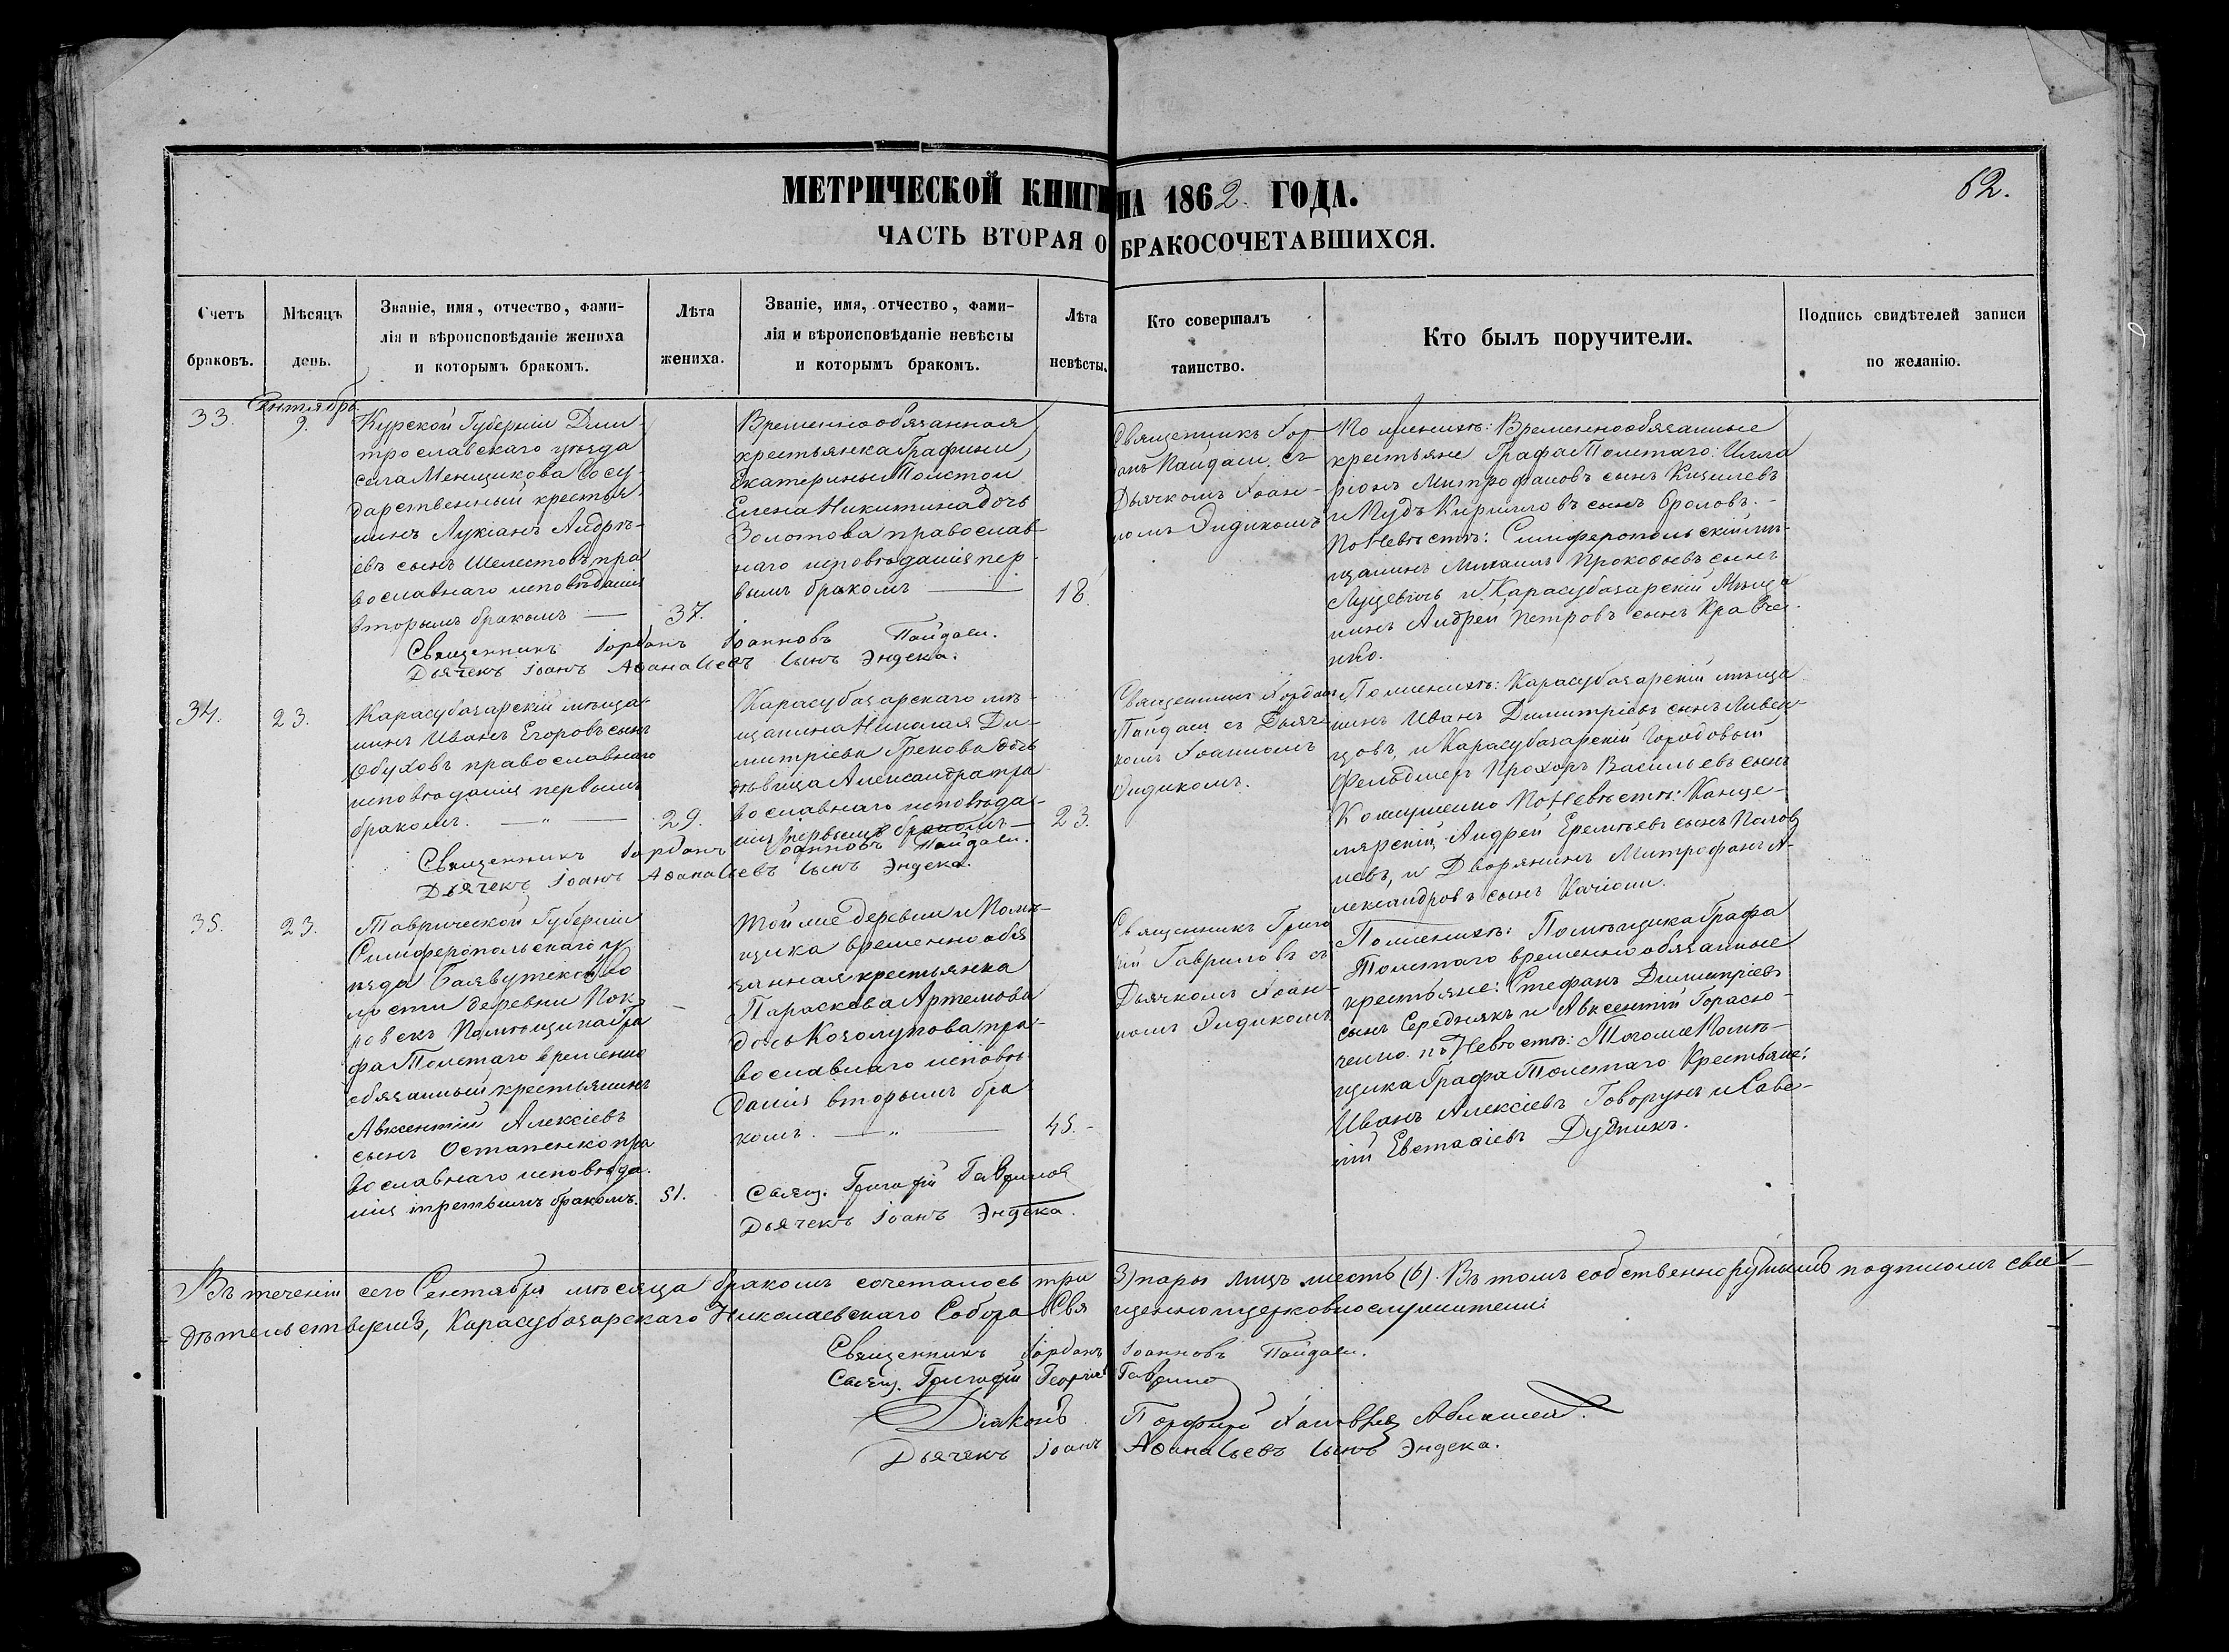 МЕТРИЧЕСКОЙ КНИГИ НА 1862 ГОДА.
62.
ЧАСТЬ ВТОРАЯ О БРАКОСОЧЕТАВШИХСЯ.
Счетъ
браковъ.
Мѣсяцъ
день.
Званіе, имя, отчество, фами-
лія и вѣроисповѣданіе жениха
и которымъ бракомъ.
Лѣта
жениха.
Званіе, имя, отчество, фами-
лія и вѣроисповѣданіе невѣсты
и которымъ бракомъ.
Лѣта
невѣсты.
Кто совершалъ
таинство.
Кто былъ поручители.
Подпись свидѣтелей записи
по желанію.
33.
Сентябрь
9.
Курской Губерніи Дми-
трославскаго уѣзда
села Менщикова Госу-
дарственный крестья-
нинъ Лукіанъ Андрѣ-
евъ сынъ Шелестовъ пра
вославнаго исповѣданія
вторымъ бракомъ —
37.
Временнообязанная
крестьянка Графини
Екатерины Толстой
Елена Никитина дочь
Золотова православ-
наго исповѣданія пер-
вымъ бракомъ —
18.
Священникъ Іор
данъ Пайдаси, съ
Дьячкомъ Іоан-
номъ Эндикомъ
По женихѣ: Временнообязанные
крестьяне Графа Толстаго: Илла
ріонъ Митрофановъ сынъ Кизилевъ
и Мудъ Кирилловъ сынъ Орловъ. -
По Невѣстѣ: Симферопольскій мѣ-
щанинъ Михаилъ Прокофьевъ сынъ
Луцевичь и Карасубазарскій Мѣща
нинъ Андрей Петровъ сынъ Кравче-
нко.
Священникъ Іорданъ Іоанновъ Пайдаси.
Дьячекъ Іоанъ Аѳанасьевъ сынъ Эндека.
34.
23.
Карасубазарскій мѣща-
нинъ Иванъ Егоровъ сынъ
Обуховъ православнаго
исповѣданія первымъ
бракомъ. — „ —
29.
Карасубазарскаго мѣ-
щанина Николая Ди-
митріева Грекова дочь
дѣвица Александра пра
вославнаго исповѣда-
нія первымъ бракомъ —
23.
Священникъ Іорданъ
Пайдаси съ Дьяч-
комъ Іоанномъ
Эндикомъ.
По женихѣ: Карасубазарскій мѣща
нинъ Иванъ Димитріевъ сынъ Ливен-
цовъ, и Карасубазарскій Городовый
Фельдшеръ Прохоръ Васильевъ сынъ
По Невѣстѣ: Канце-
лярскій Андрей Еремѣевъ сынъ
и Дворянинъ Митрофанъ А-
лександровъ сынъ Качіони.
Священникъ Іорданъ Іоанновъ Пайдаси.
Дьячекъ Іоанъ Аѳанасьевъ сынъ Эндека.
35.
23.
Таврической Губерніи
Симферопольскаго у-
ѣзда Балвутской во
лости деревни Пок-
ровскъ Помѣщика Гра
фа Толстаго временно
обязанный крестьянинъ
Авксентій Алексіевъ
сынъ Остапенко пра
вославнаго исповѣда-
нія третьимъ бракомъ.
51.
Той же деревни и Помѣ-
щика временно обя
занная крестьянка
Параскева Артемова
дочь Козолупова пра-
вославнаго исповѣ
данія вторымъ бра
комъ. — „ —
45. -
Священникъ Григо
рій Гавриловъ съ
Дьячкомъ Іоан-
номъ Эндикомъ
По женихѣ: Помѣщика Графа
Толстаго временно обязанные
крестьяне: Стефанъ Димитріевъ
сынъ Середнякъ и Авксентій Горасю-
ченко. по Невѣстѣ: Тогоже Помѣ-
щика Графа Толстаго Крестьяне:
Иванъ Алексіевъ Говорунъ и Саве-
лій Евстафіевъ Дудникъ.
Свящ. Григорій Гавриловъ
Дьячекъ Іоанъ Эндека.
Въ теченіи сего Сентября мѣсяца бракомъ сочеталось три 3) пары лицъ шесть (6). Въ томъ собственноручнымъ подписомъ сви-
дѣтельствуемъ, Карасубазарскаго Николаевскаго Собора Свя щенноцерковнослужители:
Священникъ Іорданъ Іоанновъ Пайдаси.
Свящ. Григорій Георгіевъ Гаврило
Діаконъ Порфирій
Дьячекъ Іоанъ Аѳанасьевъ сынъ Эндека.